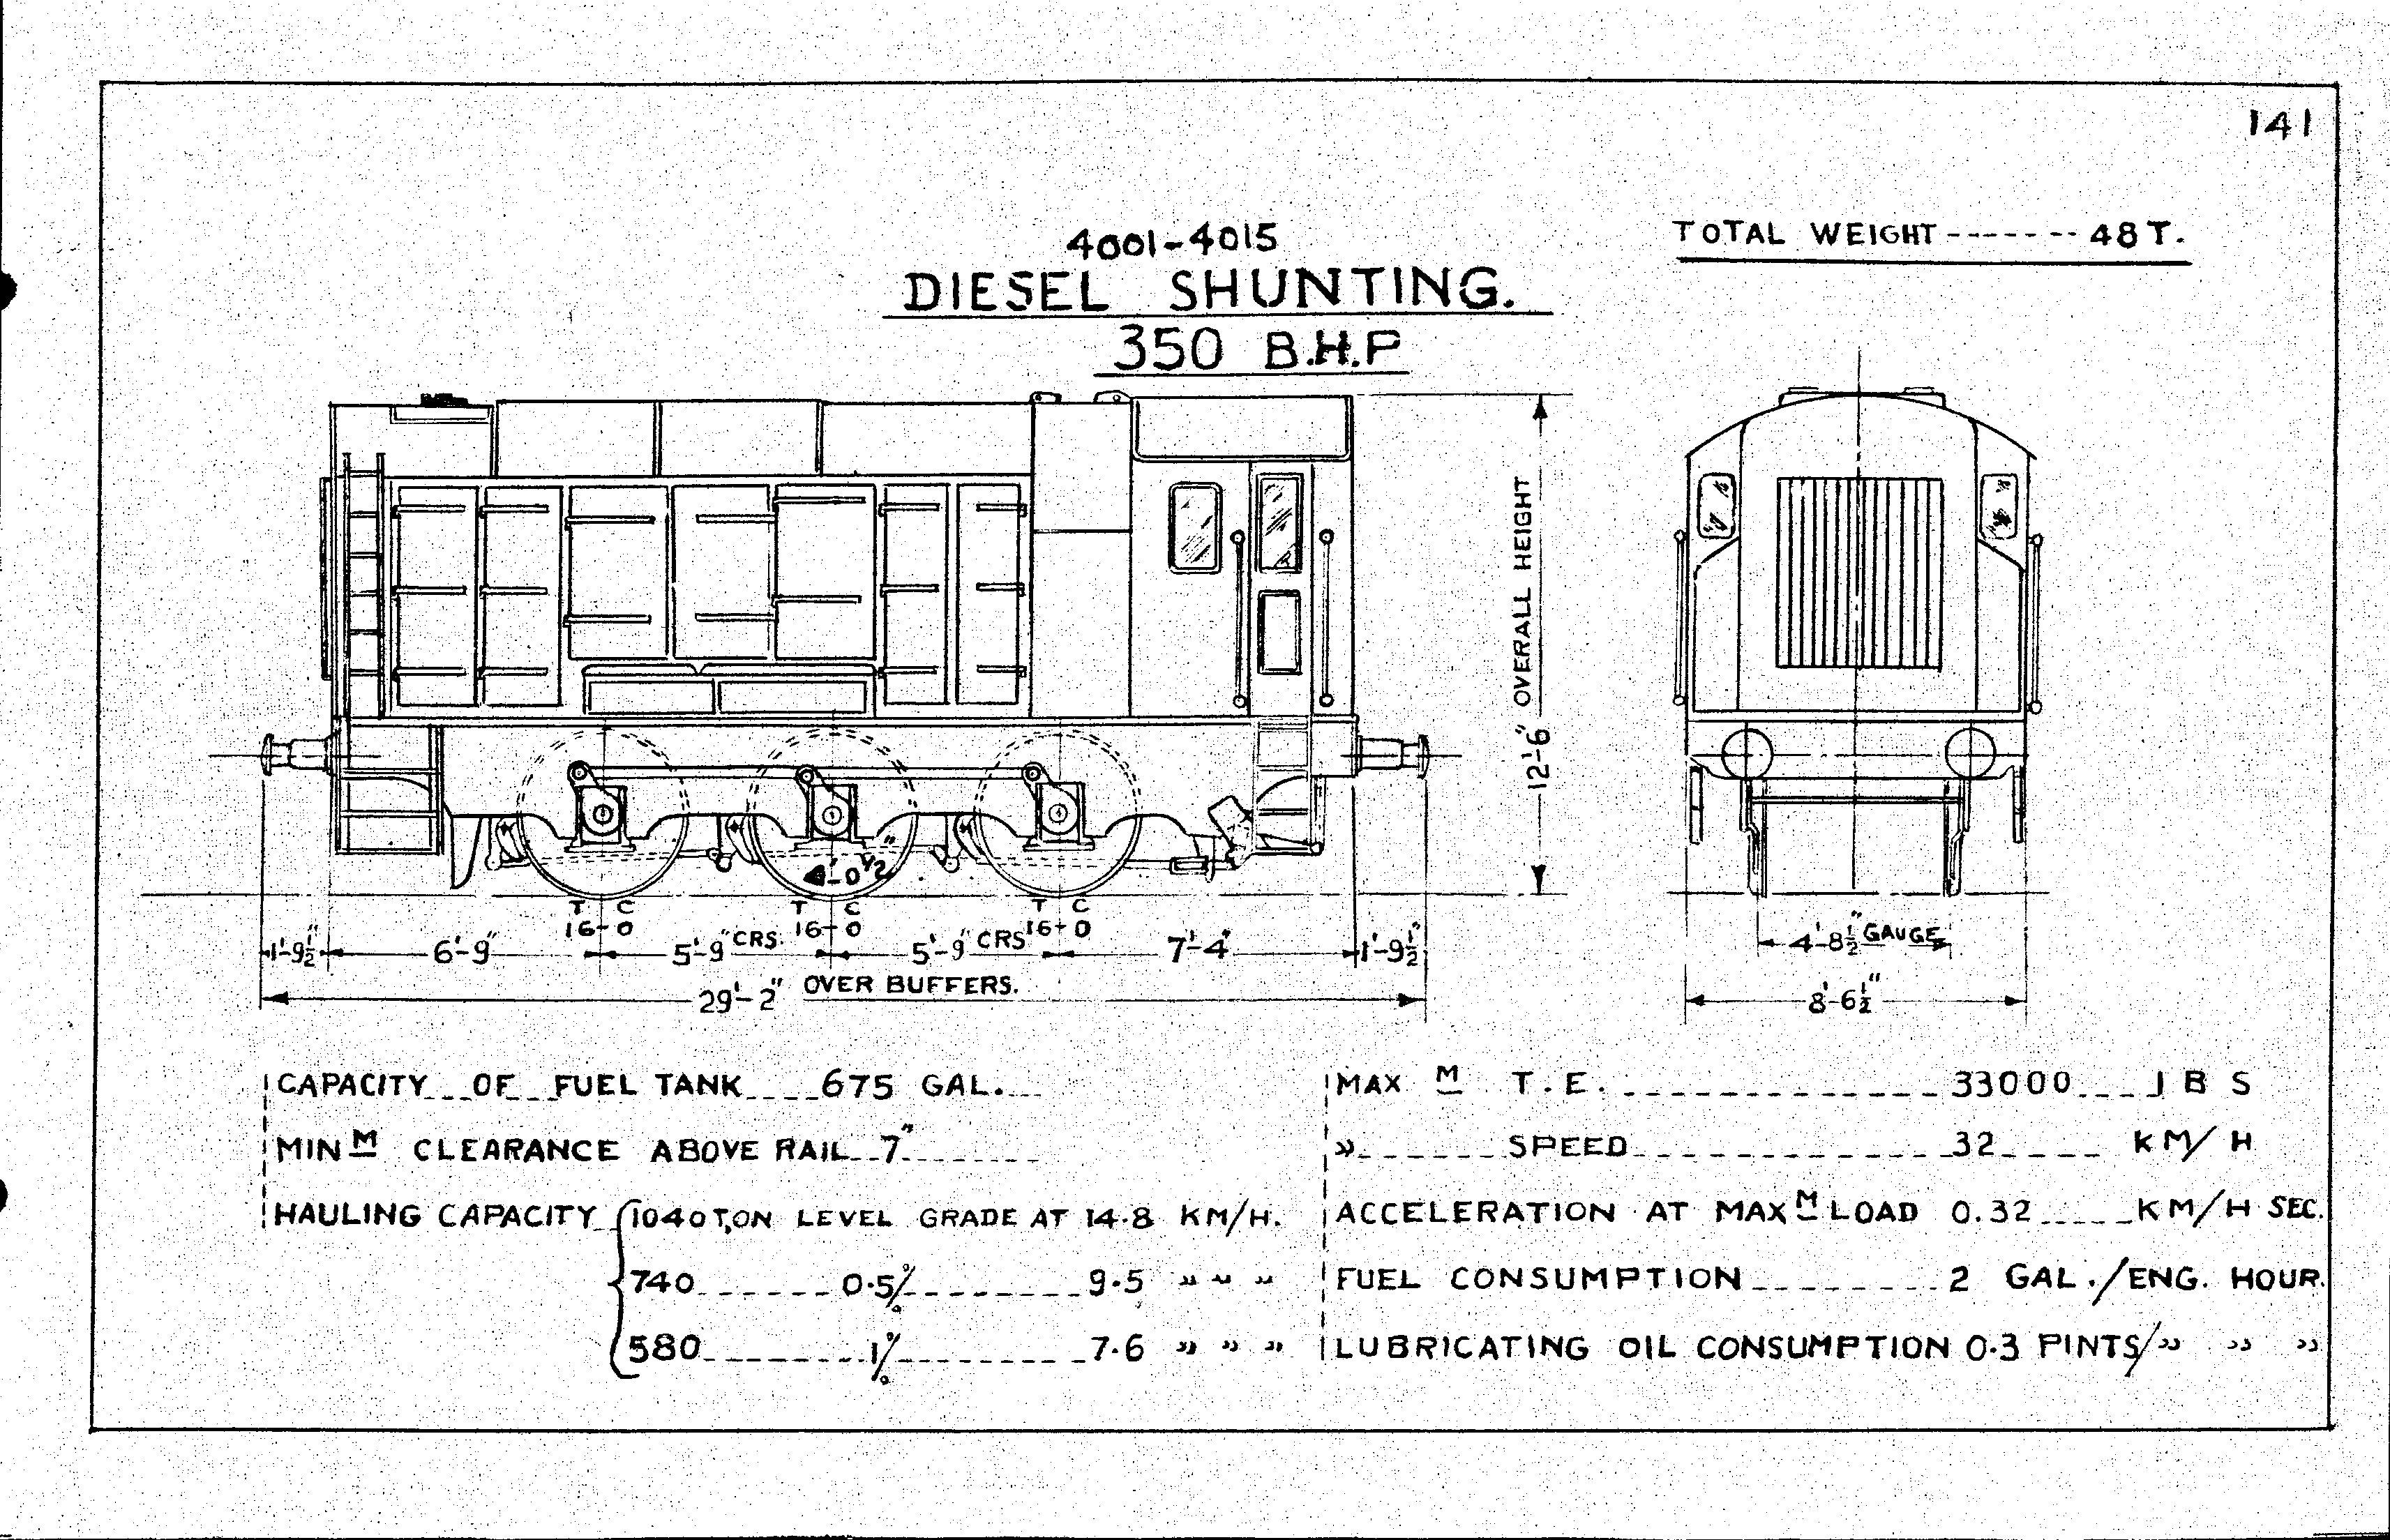 141
4001-4015
TOTAL WEIGHT ------- 48T.
DIESEL SHUNTING.
350 B.H.P
12'-6" OVERALL HEIGHT
4'-0 1/2"
T C T C T C
16-0 16-0 16-0
1'-9½" 6'-9" 5'-9" CRS. 5'-9" CRS 7'-4" 1'-9½"
4'-8½" GAUGE
29'-2" OVER BUFFERS.
8'-6½"
CAPACITY OF FUEL TANK 675 GAL.
MINM CLEARANCE ABOVE RAIL 7"
HAULING CAPACITY { 1040 TON LEVEL GRADE AT 14.8 KM/H.
740 ------ 0.5% --------- 9.5 " " "
580 --------- 1% --------- 7.6 " " "
MAX M T.E. -------------- 33000 ---- LBS
" ------- SPEED -------------- 32 ----- KM/H
ACCELERATION AT MAXM LOAD 0.32 ----- KM/H SEC.
FUEL CONSUMPTION -------- 2 GAL./ENG. HOUR.
LUBRICATING OIL CONSUMPTION 0.3 PINTS/" " "